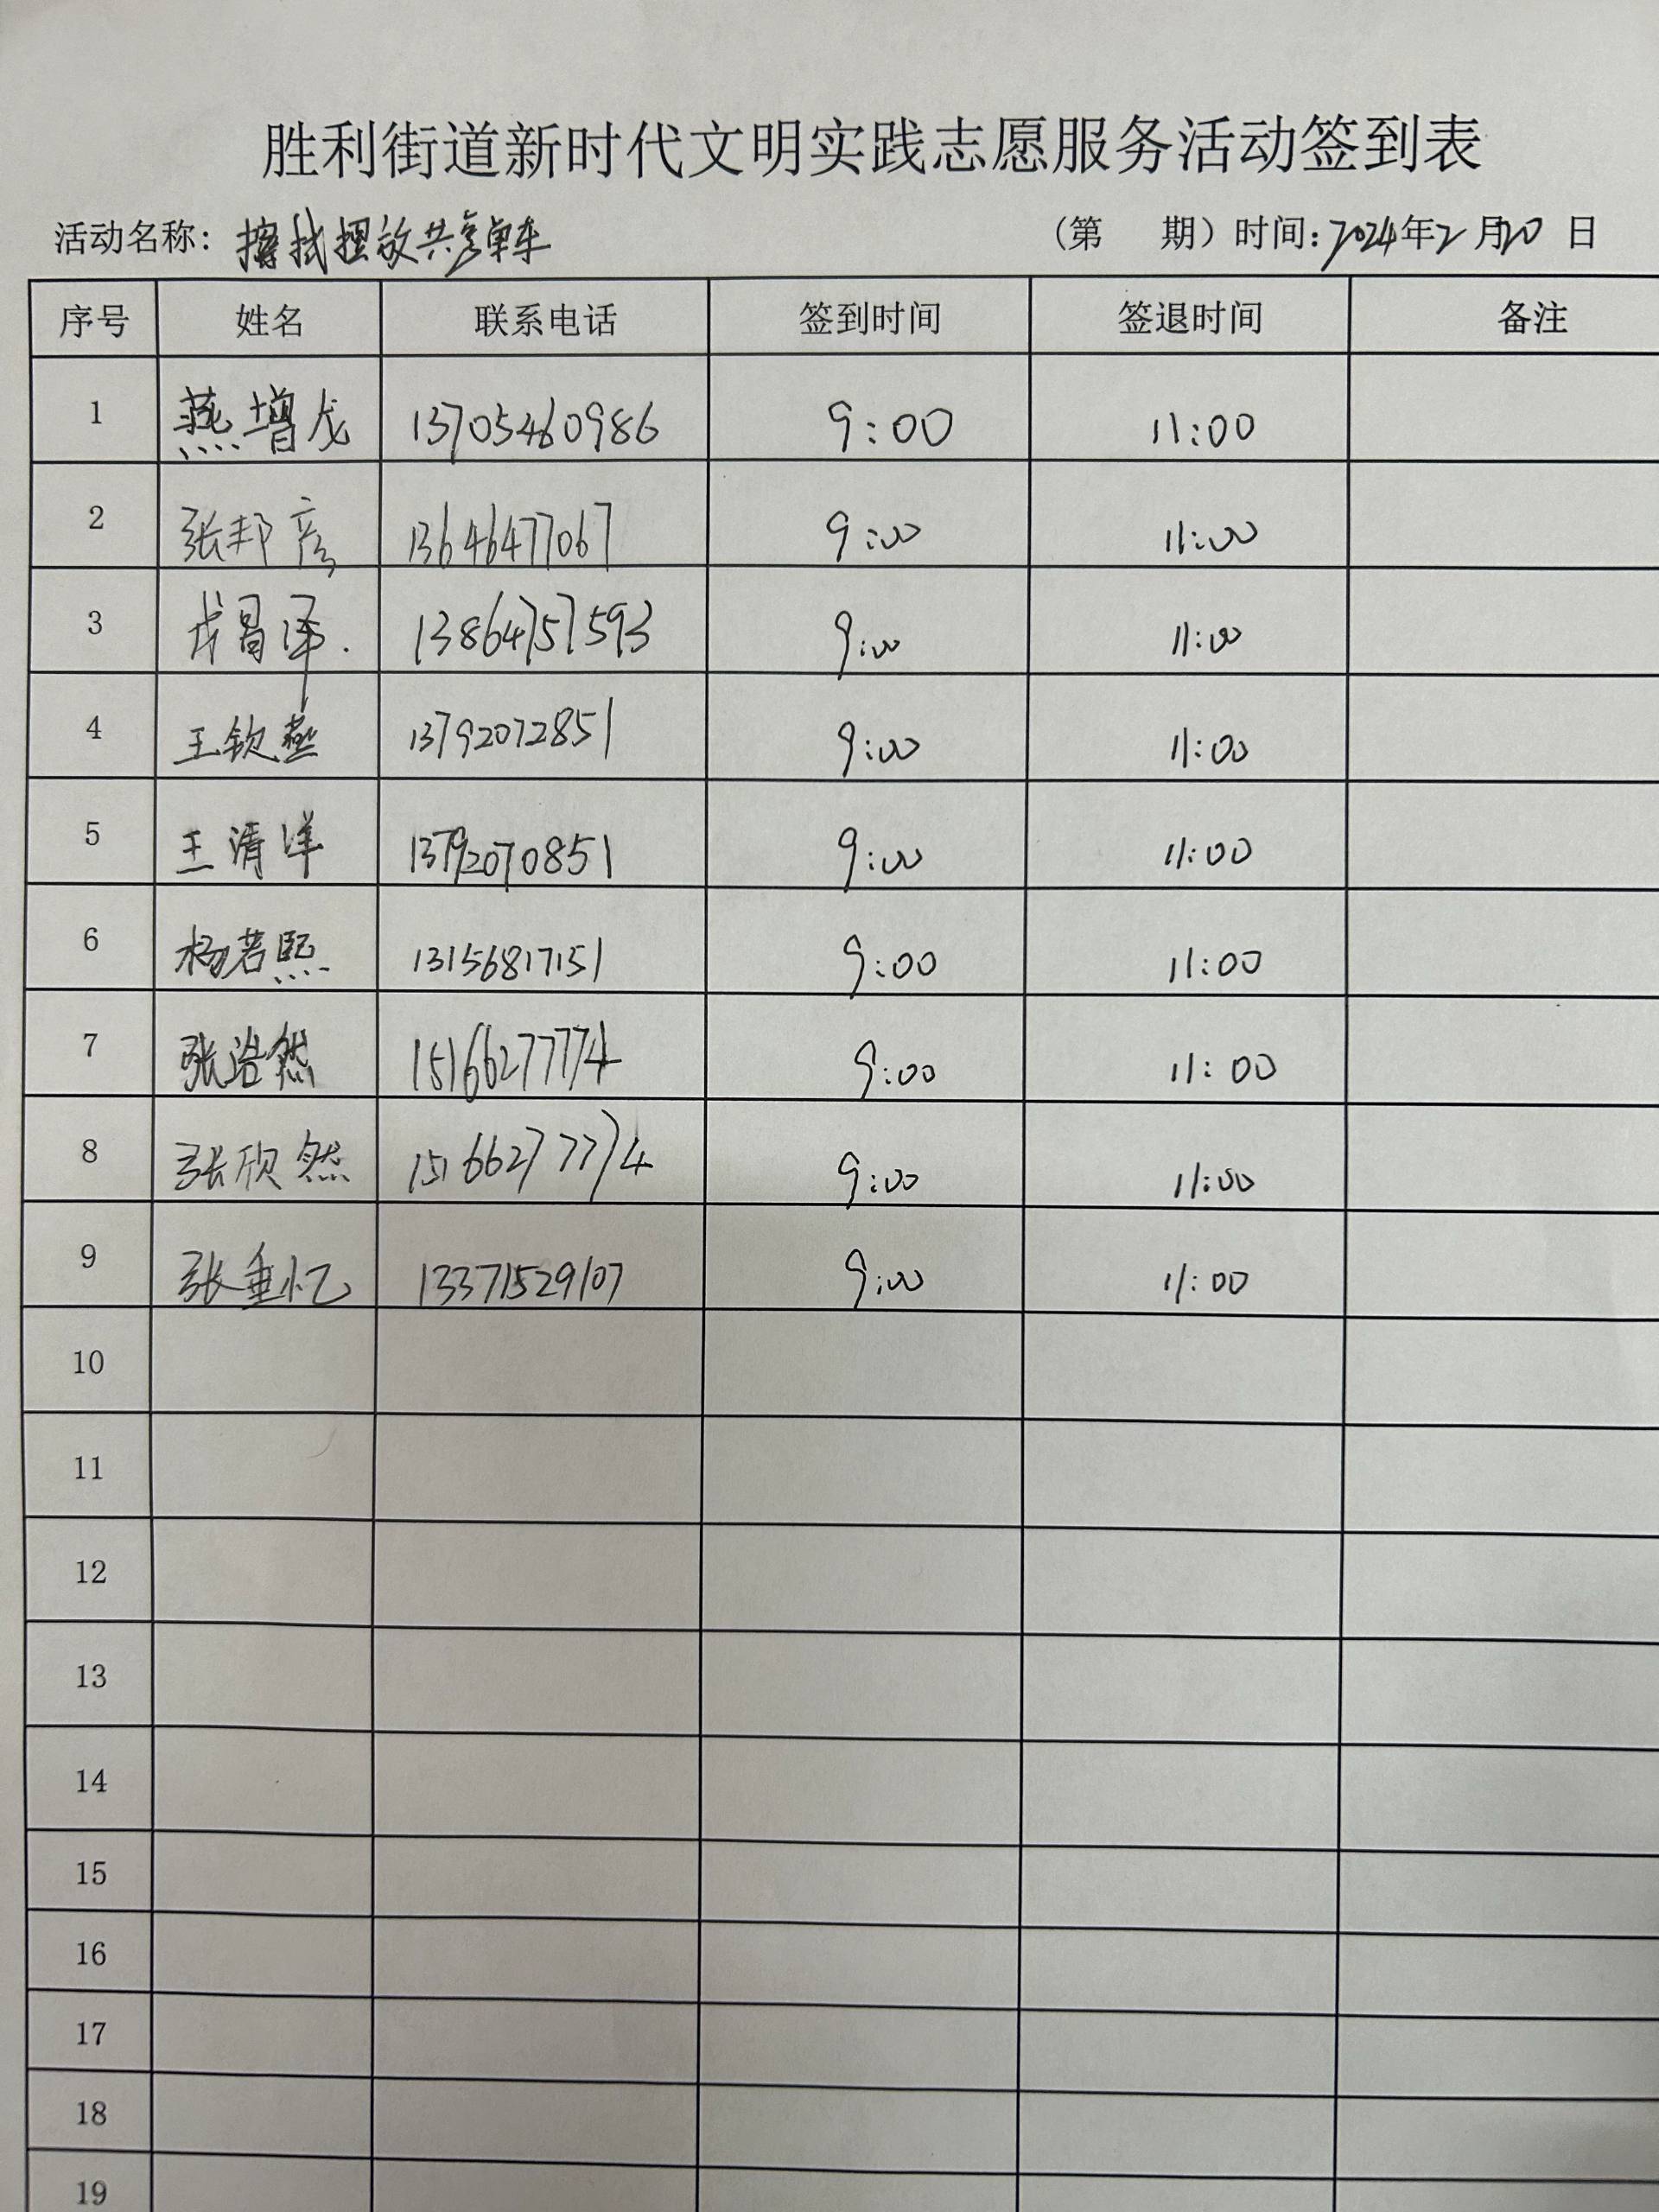 胜利街道新时代文明实践志愿服务活动签到表
活动名称：擦拭摆放共享单车 （第 期）时间：2024年2月20日
序号 姓名 联系电话 签到时间 签退时间 备注
1 燕增龙 13705460986 9:00 11:00
2 张邦彦 13646477067 9:00 11:00
3 昌泽 13864757593 9:00 11:00
4 王钦燕 13792072851 9:00 11:00
5 王清洋 13792070851 9:00 11:00
6 杨若熙 13156817151 9:00 11:00
7 张浩然 15166277774 9:00 11:00
8 张欣然 15166277774 9:00 11:00
9 张垂忆 13371529107 9:00 11:00
10
11
12
13
14
15
16
17
18
19